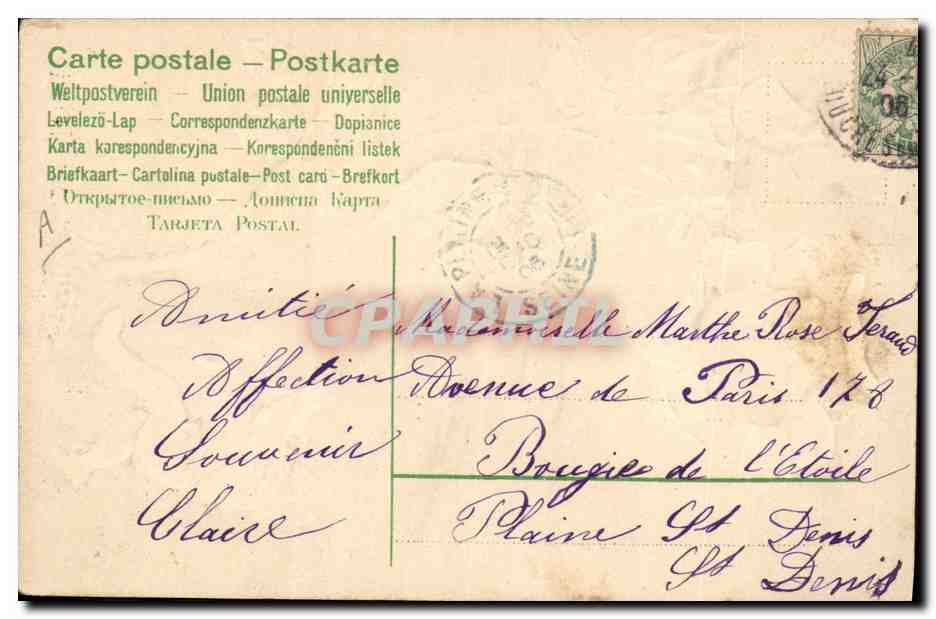 Carte postale — Postkarte
Weltpostverein — Union postale universelle
Levelező-Lap — Correspondenzkarte — Dopisnice
Karta korespondencyjna — Korespondenční listek
Briefkaart — Cartolina postale — Post card — Brefkort
Открытое-письмо — Дописна Карта
TARJETA POSTAL
A
24
06
PLAINE
SEINE
CPAPHIL
Amitié
Affection
Souvenir
Claire
Mademoiselle Marthe Rose Feraud
Avenue de Paris 178
Bougie de l'Etoile
Plaine St Denis
St Denis